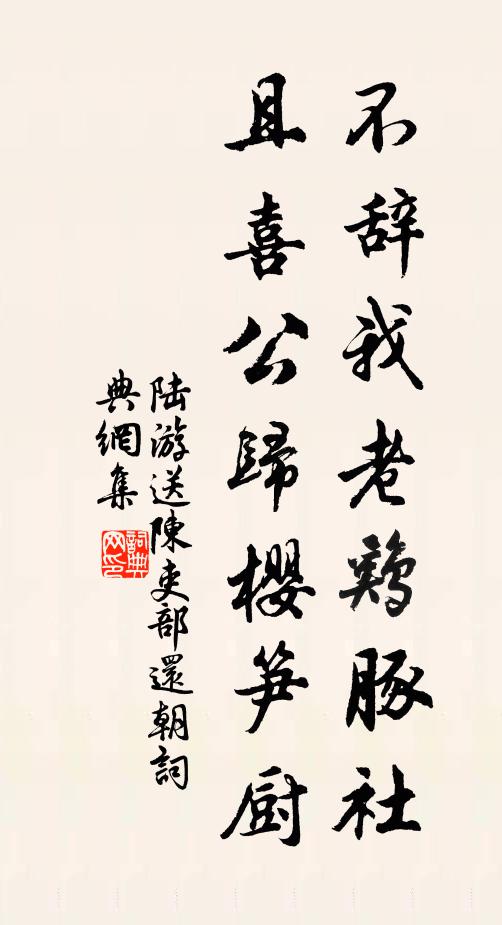 不辞我老鷄豚社
且喜公歸櫻笋厨
陆游送陳吏部還朝詞
典網集
詞典网印